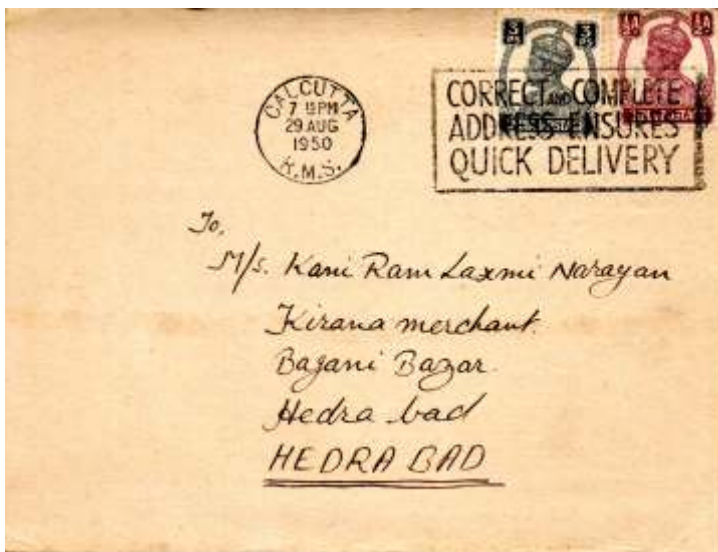 3 3
½A ½A
CALCUTTA
7 15PM
29 AUG
1950
R.M.S.
CORRECT AND COMPLETE
ADDRESS ENSURES
QUICK DELIVERY
To,
M/s. Kani Ram Laxmi Narayan
Kirana merchant.
Bagani Bazar.
Hedra bad
HEDRA BAD